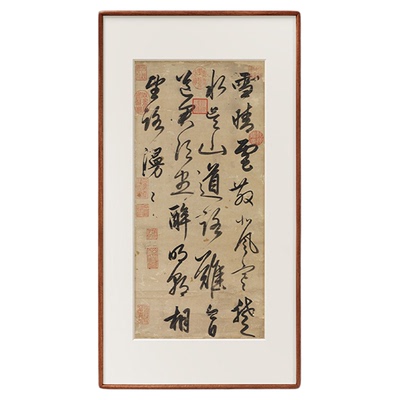 雪晴雲散北風寒楚
水吳山道路難今日
送君須盡醉明朝相
憶路漫〻